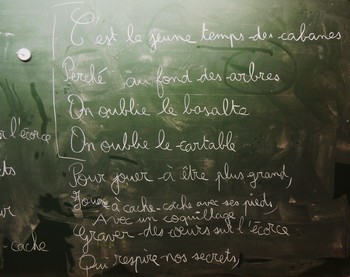 C'est le jeune temps des cabanes
Perché au fond des arbres
On oublie le basalte
On oublie le cartable
Pour jouer à être plus grand,
Jouer à cache-cache avec ses pieds,
Avec un coquillage
Graver des cœurs sur l'écorce
Qui respire nos secrets,
r l'écorce
ts
ur
-cache